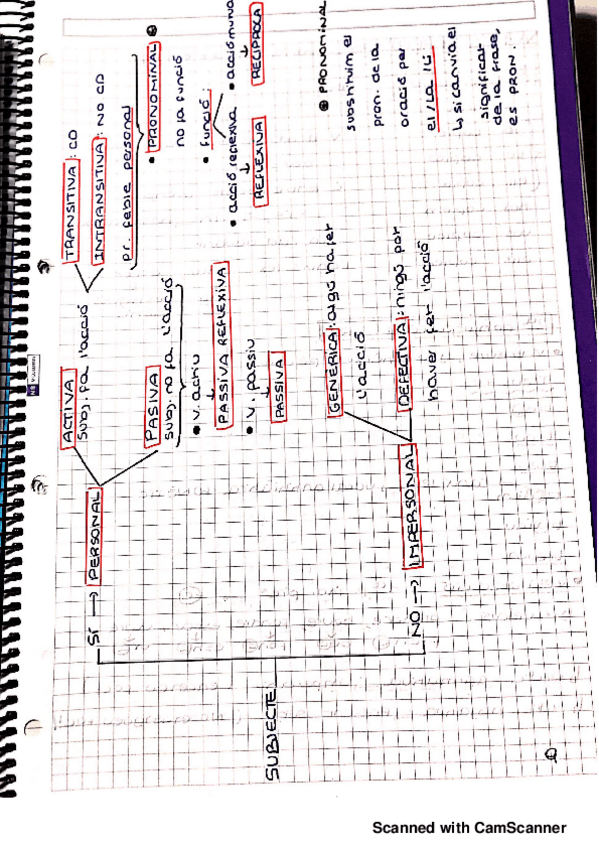 SUBJECTE
SÍ → PERSONAL
ACTIVA
subj. fa l'acció
TRANSITIVA : CD
INTRANSITIVA : NO CD
pr. feble personal
• PRONOMINAL
no fa funció
• funció
• acció reflexiva
REFLEXIVA
• acció mutua
RECÍPROCA
PASIVA
subj. no fa l'acció
• v. actiu
PASSIVA REFLEXIVA
• v. passiu
PASSIVA
NO → IMPERSONAL
GENÈRICA : algú ha fer
l'acció
DEFECTIVA : ningú pot
haver fer l'acció
PRONOMINAL
substituïm el
pron. de la
oració per
el/la/li
↳ si canvia el
significat
de la frase,
es PRON.
Scanned with CamScanner